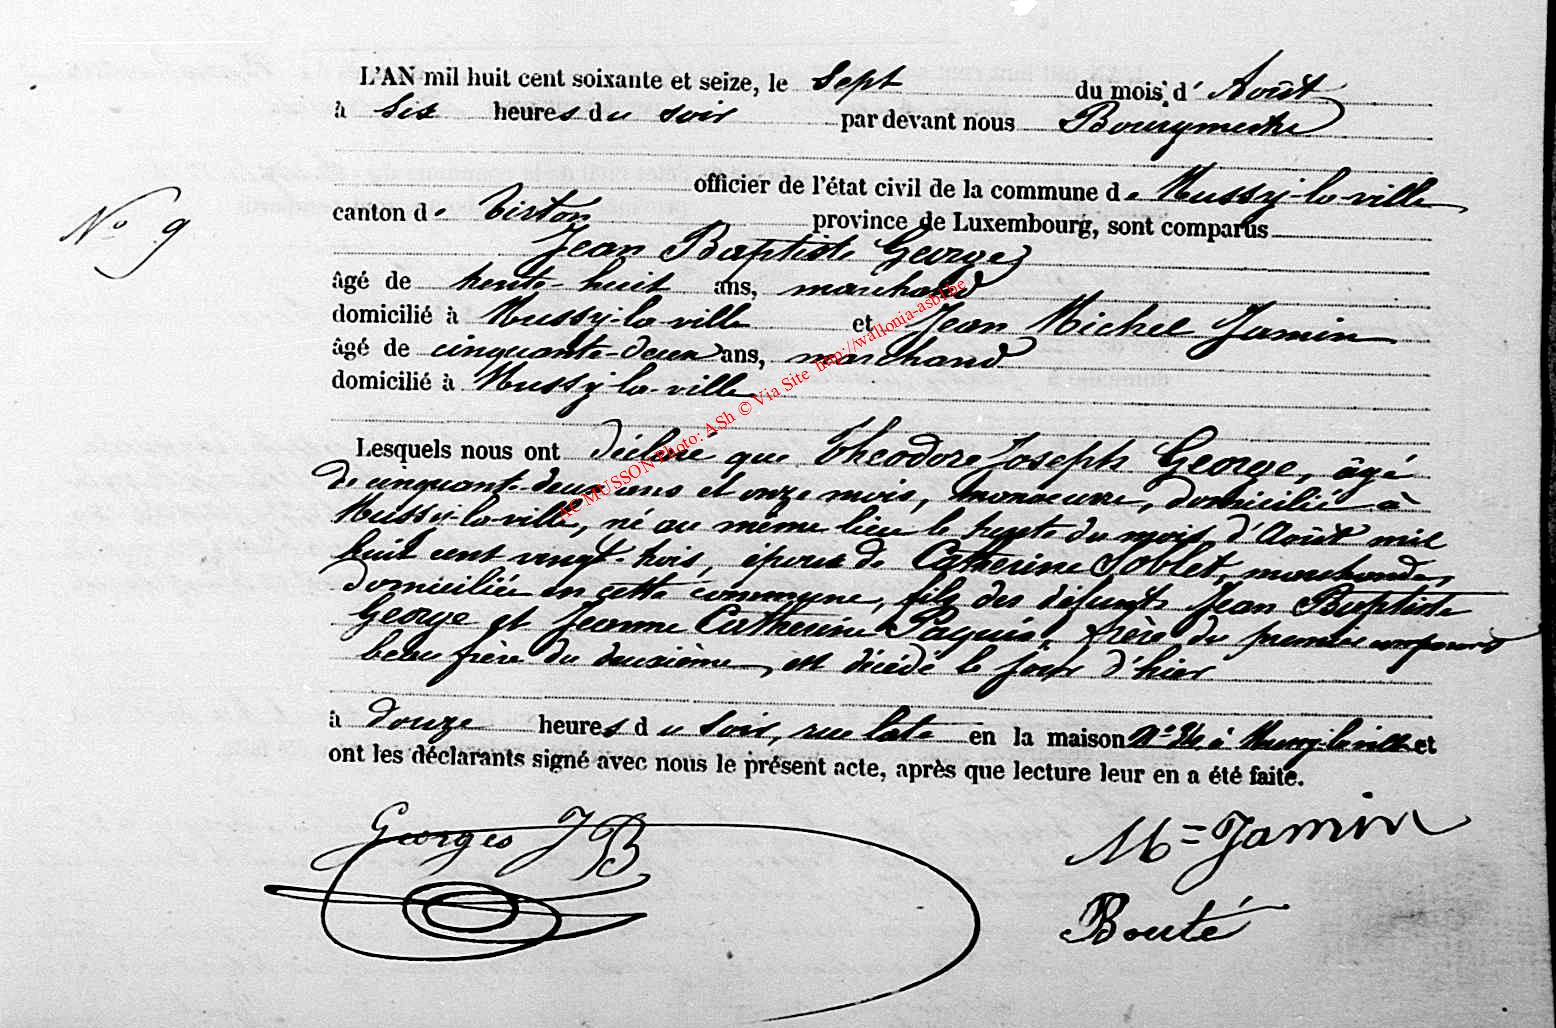 L'AN mil huit cent soixante et seize, le Sept du mois d'Août
à six heures du soir par devant nous Bourgmestre
officier de l'état civil de la commune de Mussy-la-ville
No 9
canton de Virton province de Luxembourg, sont comparus
Jean Baptiste George
âgé de trente-huit ans, marchand
domicilié à Mussy-la-ville et Jean Michel Jamin
âgé de cinquante-deux ans, marchand
domicilié à Mussy-la-ville
AC MUSSON Photo: ASh © Via Site http://wallonia-asbl.be
Lesquels nous ont déclaré que Théodore Joseph George, âgé
de cinquante-deux ans et onze mois, manoeuvre, domicilié à
Mussy-la-ville, né au même lieu le trente du mois d'Août mil
huit cent vingt-trois, époux de Catherine Soblet, marchande,
domiciliée en cette commune, fils des défunts Jean Baptiste
George et Jeanne Catherine Paquis, frère du premier comparant
beau frère du deuxième, est décédé le jour d'hier
à douze heures du soir, rue en la maison No à Mussy-la-ville et
ont les déclarants signé avec nous le présent acte, après que lecture leur en a été faite.
Georges JB
M= Jamin
Bouté